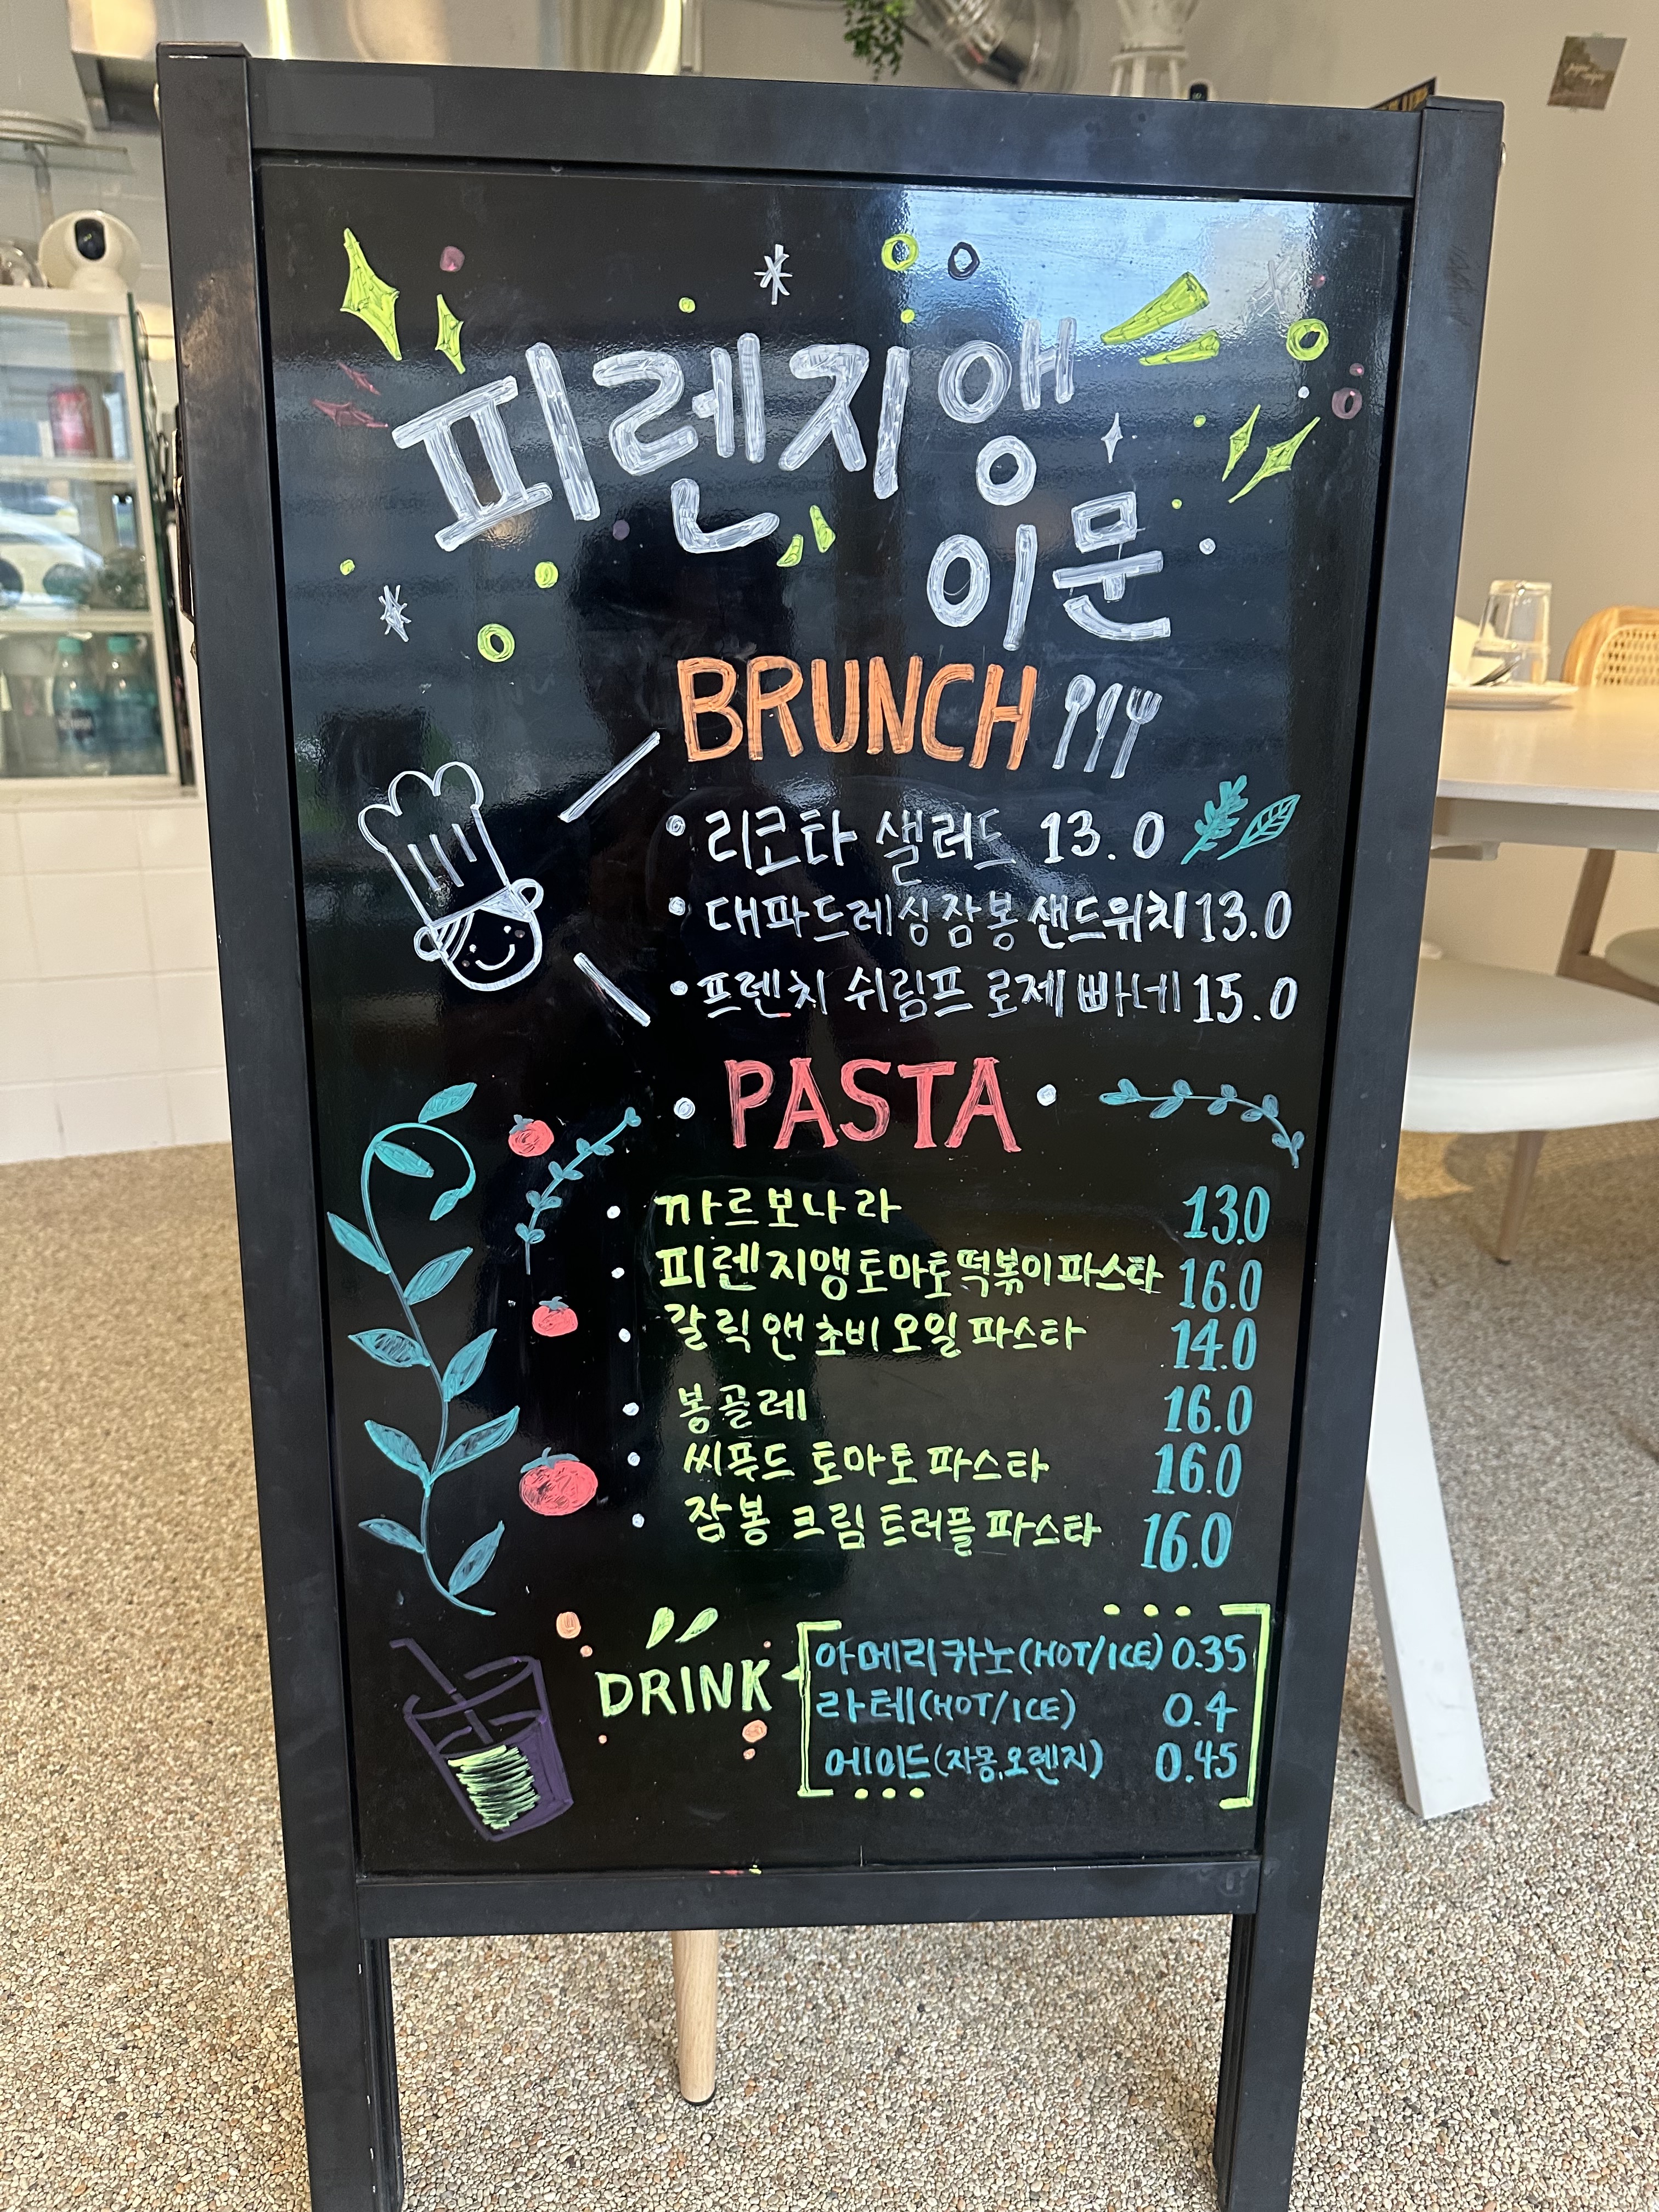 피렌지앵
이문
BRUNCH
리코타 샐러드 13.0
대파드레싱잠봉샌드위치 13.0
프렌치 쉬림프 로제 빠네 15.0
PASTA
까르보나라 130
피렌지앵토마토떡볶이파스타 16.0
갈릭앤초비오일파스타 14.0
봉골레 16.0
씨푸드 토마토 파스타 16.0
잠봉 크림 트러플 파스타 16.0
DRINK
아메리카노(HOT/ICE) 0.35
라테(HOT/ICE) 0.4
에이드(자몽,오렌지) 0.45